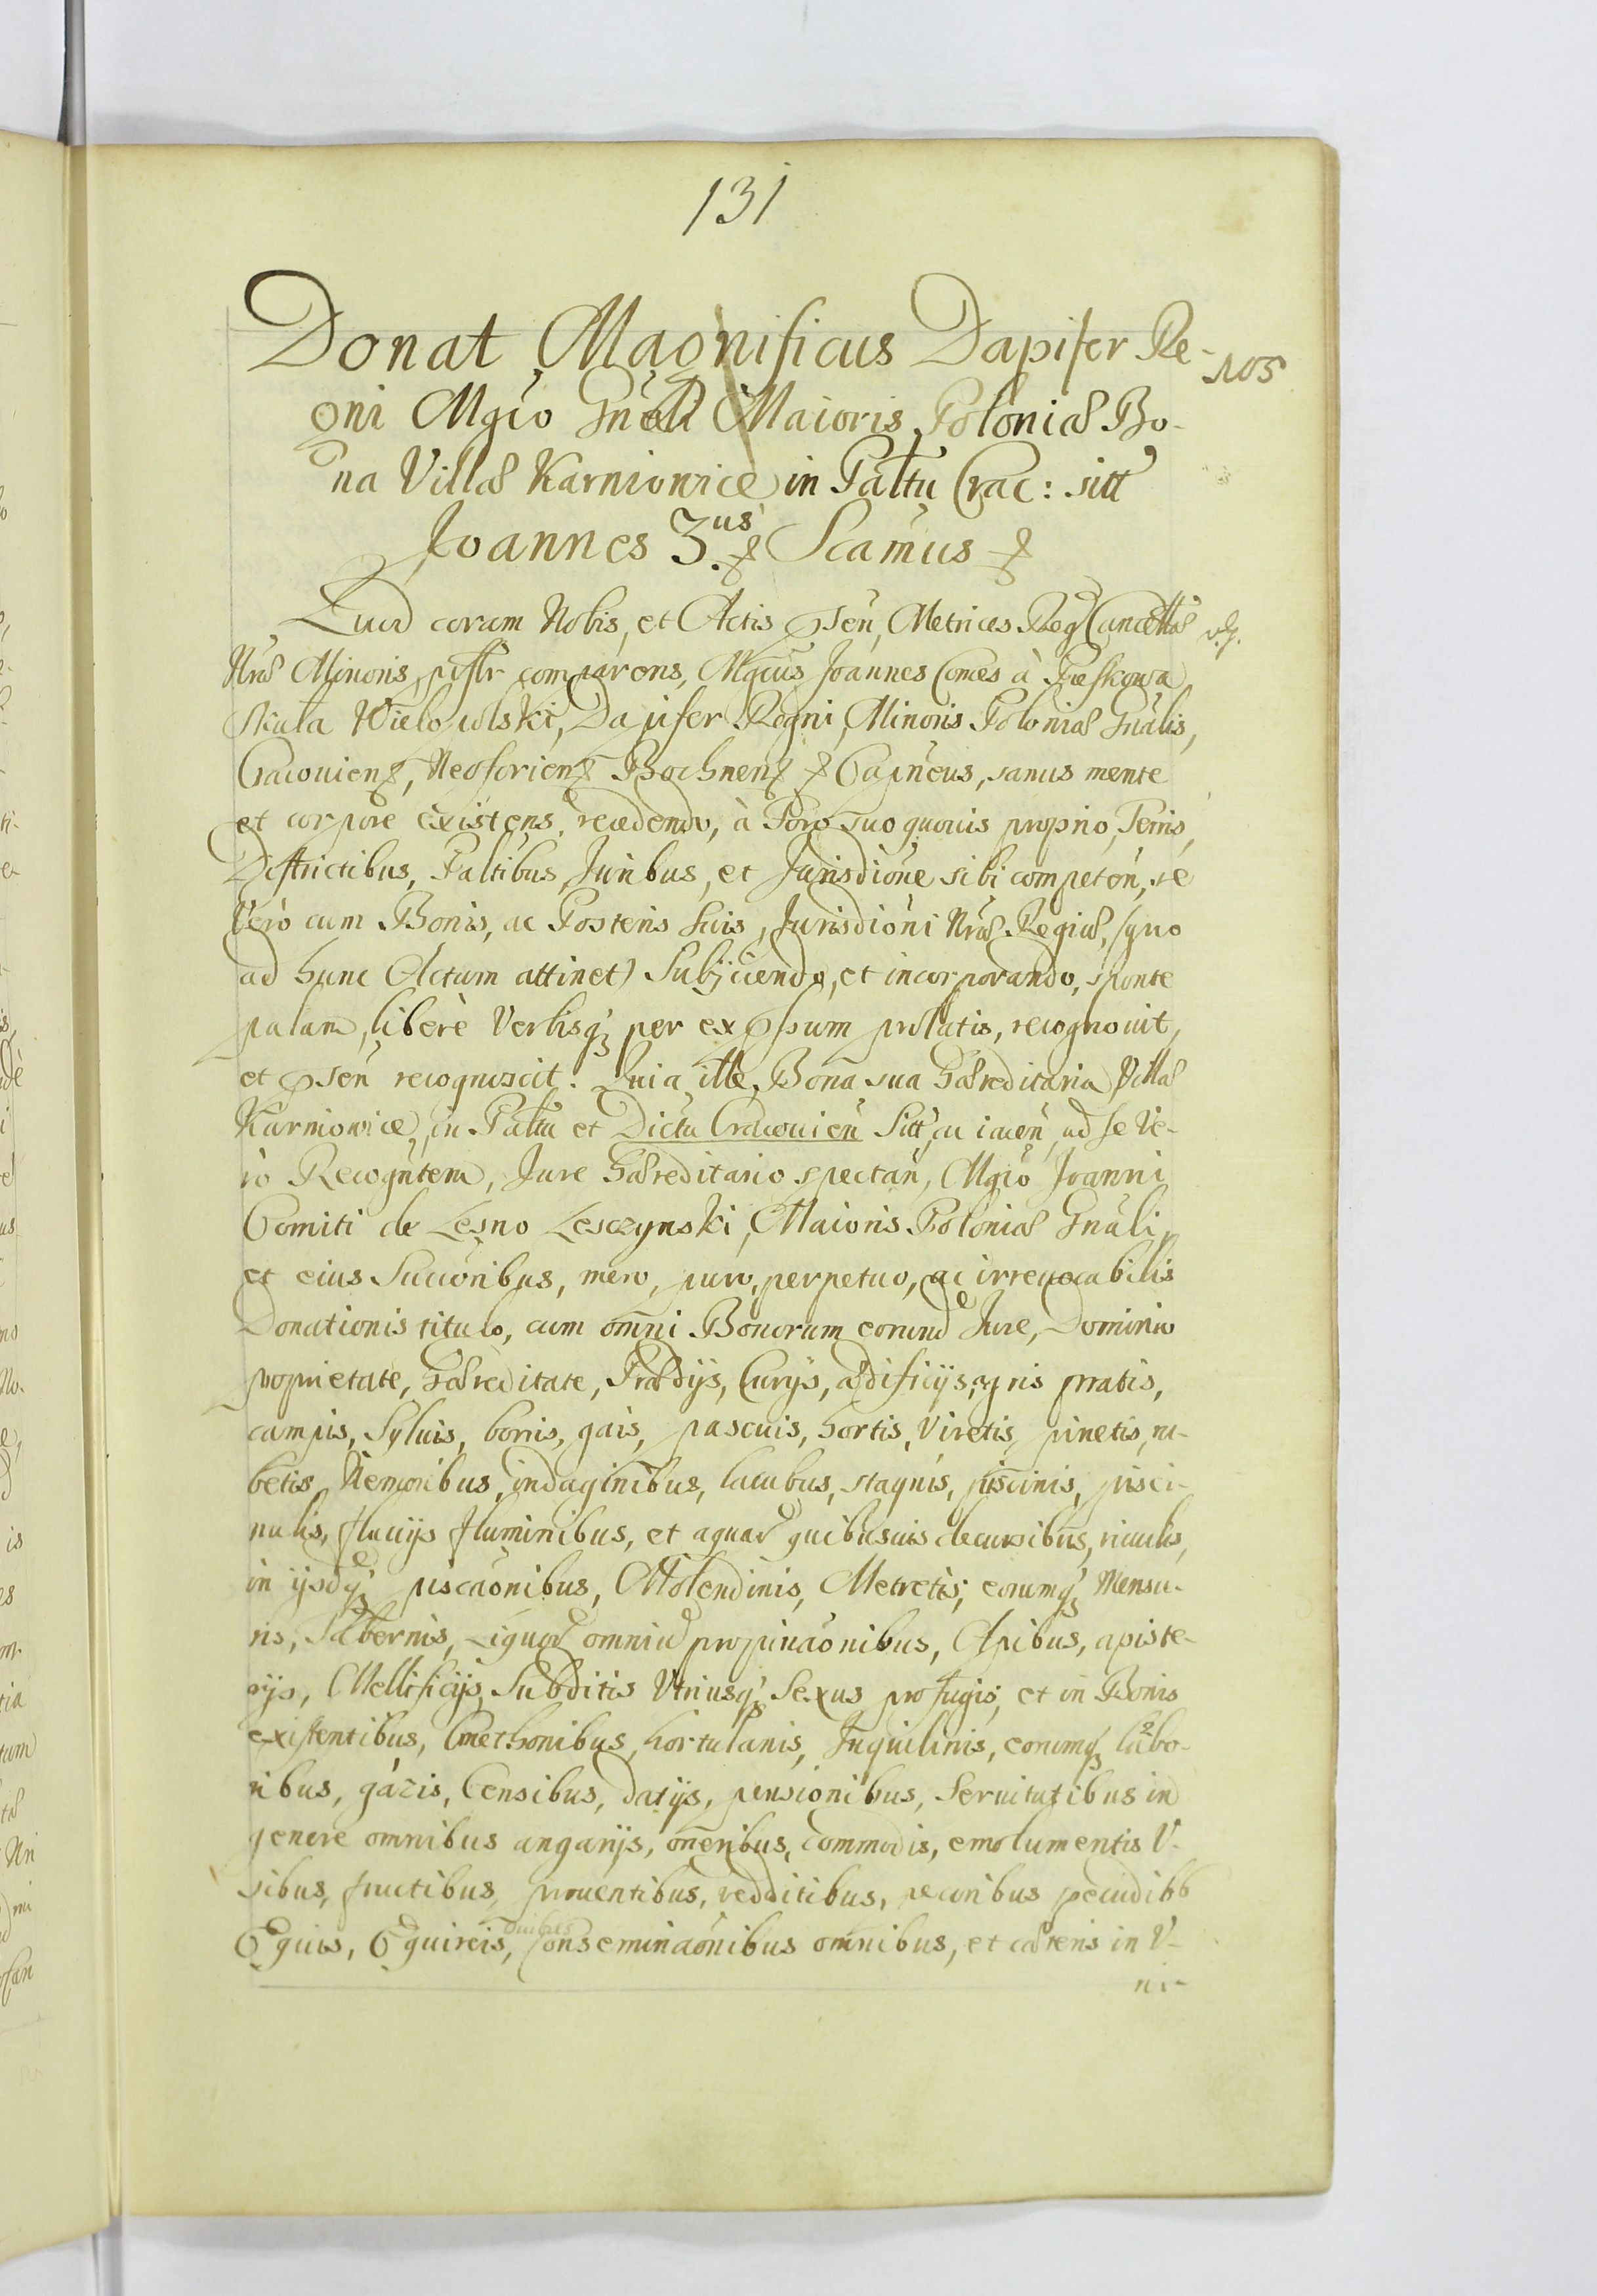 131
Donat Magnificus Dapifer Re-
105
gni Mgco Gnali Maioris Poloniæ Bo-
na Villæ Karniowice in Paltu Crac: sitt
Joannes 3.us Scamus
Quod coram Nobis, et Actis Psen, Metrices Reg Cancellæ
Nræ Minoris, psflr comparens, Mgcus Joannes Comes à Pieskowa
Skala Wielopolski, Dapifer Regni, Minoris Poloniæ Gnalis,
Cracouien, Neoforien Bochnen Capneus, sanus mente
et corpore existens, recedendo, à Foro suo quouis proprio, Terris,
Districtibus, Paltibus, Juribus, et Jurisdione sibi competen, se
Vero cum Bonis, ac Posteris suis, Jurisdioni Nræ Regiæ, (quo
ad hunc Actum attinet) Subjiciendo, et incorporando, sponte
palam, liberè Verbisq per expssum prolatis, recognouit,
et psen recognoscit. Quia ille, Bona sua Hæreditaria Villæ
Karniowice, in Paltu et Dictu Cracouien Sitt, ac iacen, ad se Ve-
ro Recogntem, Jure Hæreditario spectan, Mgco Joanni
Comiti de Lesno Lesczynski, Maioris Poloniæ Gnali,
et eius Succoribus, mero, puro, perpetuo, ac irreuocabilis
Donationis titulo, cum omni Bonorum eorund Jure, Dominio
proprietate, Hæreditate, Prædijs, Curijs, ædificijs, agris pratis,
campis, Syluis, borris, gais, pascuis, hortis, Viretis, pinetis, ru-
betis, Nemoribus, indaginibus, lacubus, stagnis, piscinis, pisci-
nulis, fluuijs fluminibus, et aquar quibusuis decursibus, riuulis,
in ijsdq piscaonibus, Molendinis, Metretis, eorumq Mensu-
ris, Tabernis, Liquor omniu propinaonibus, Apibus, apiste-
rijs, Mellificijs, Subditis Vtriusq Sexus profugis, et in Bonis
existentibus, Cmethonibus, hortulanis, Inquilinis, eorumq labo-
ribus, gazis, Censibus, datijs, pensionibus, Seruitutibus in
genere omnibus angarijs, oneribus, commodis, emolumentis V-
sibus, fructibus, prouentibus, redditibus, pecoribus pecudibb
Equis, Equireis, ouibus Conseminaonibus omnibus, et cæteris in V-
ni-